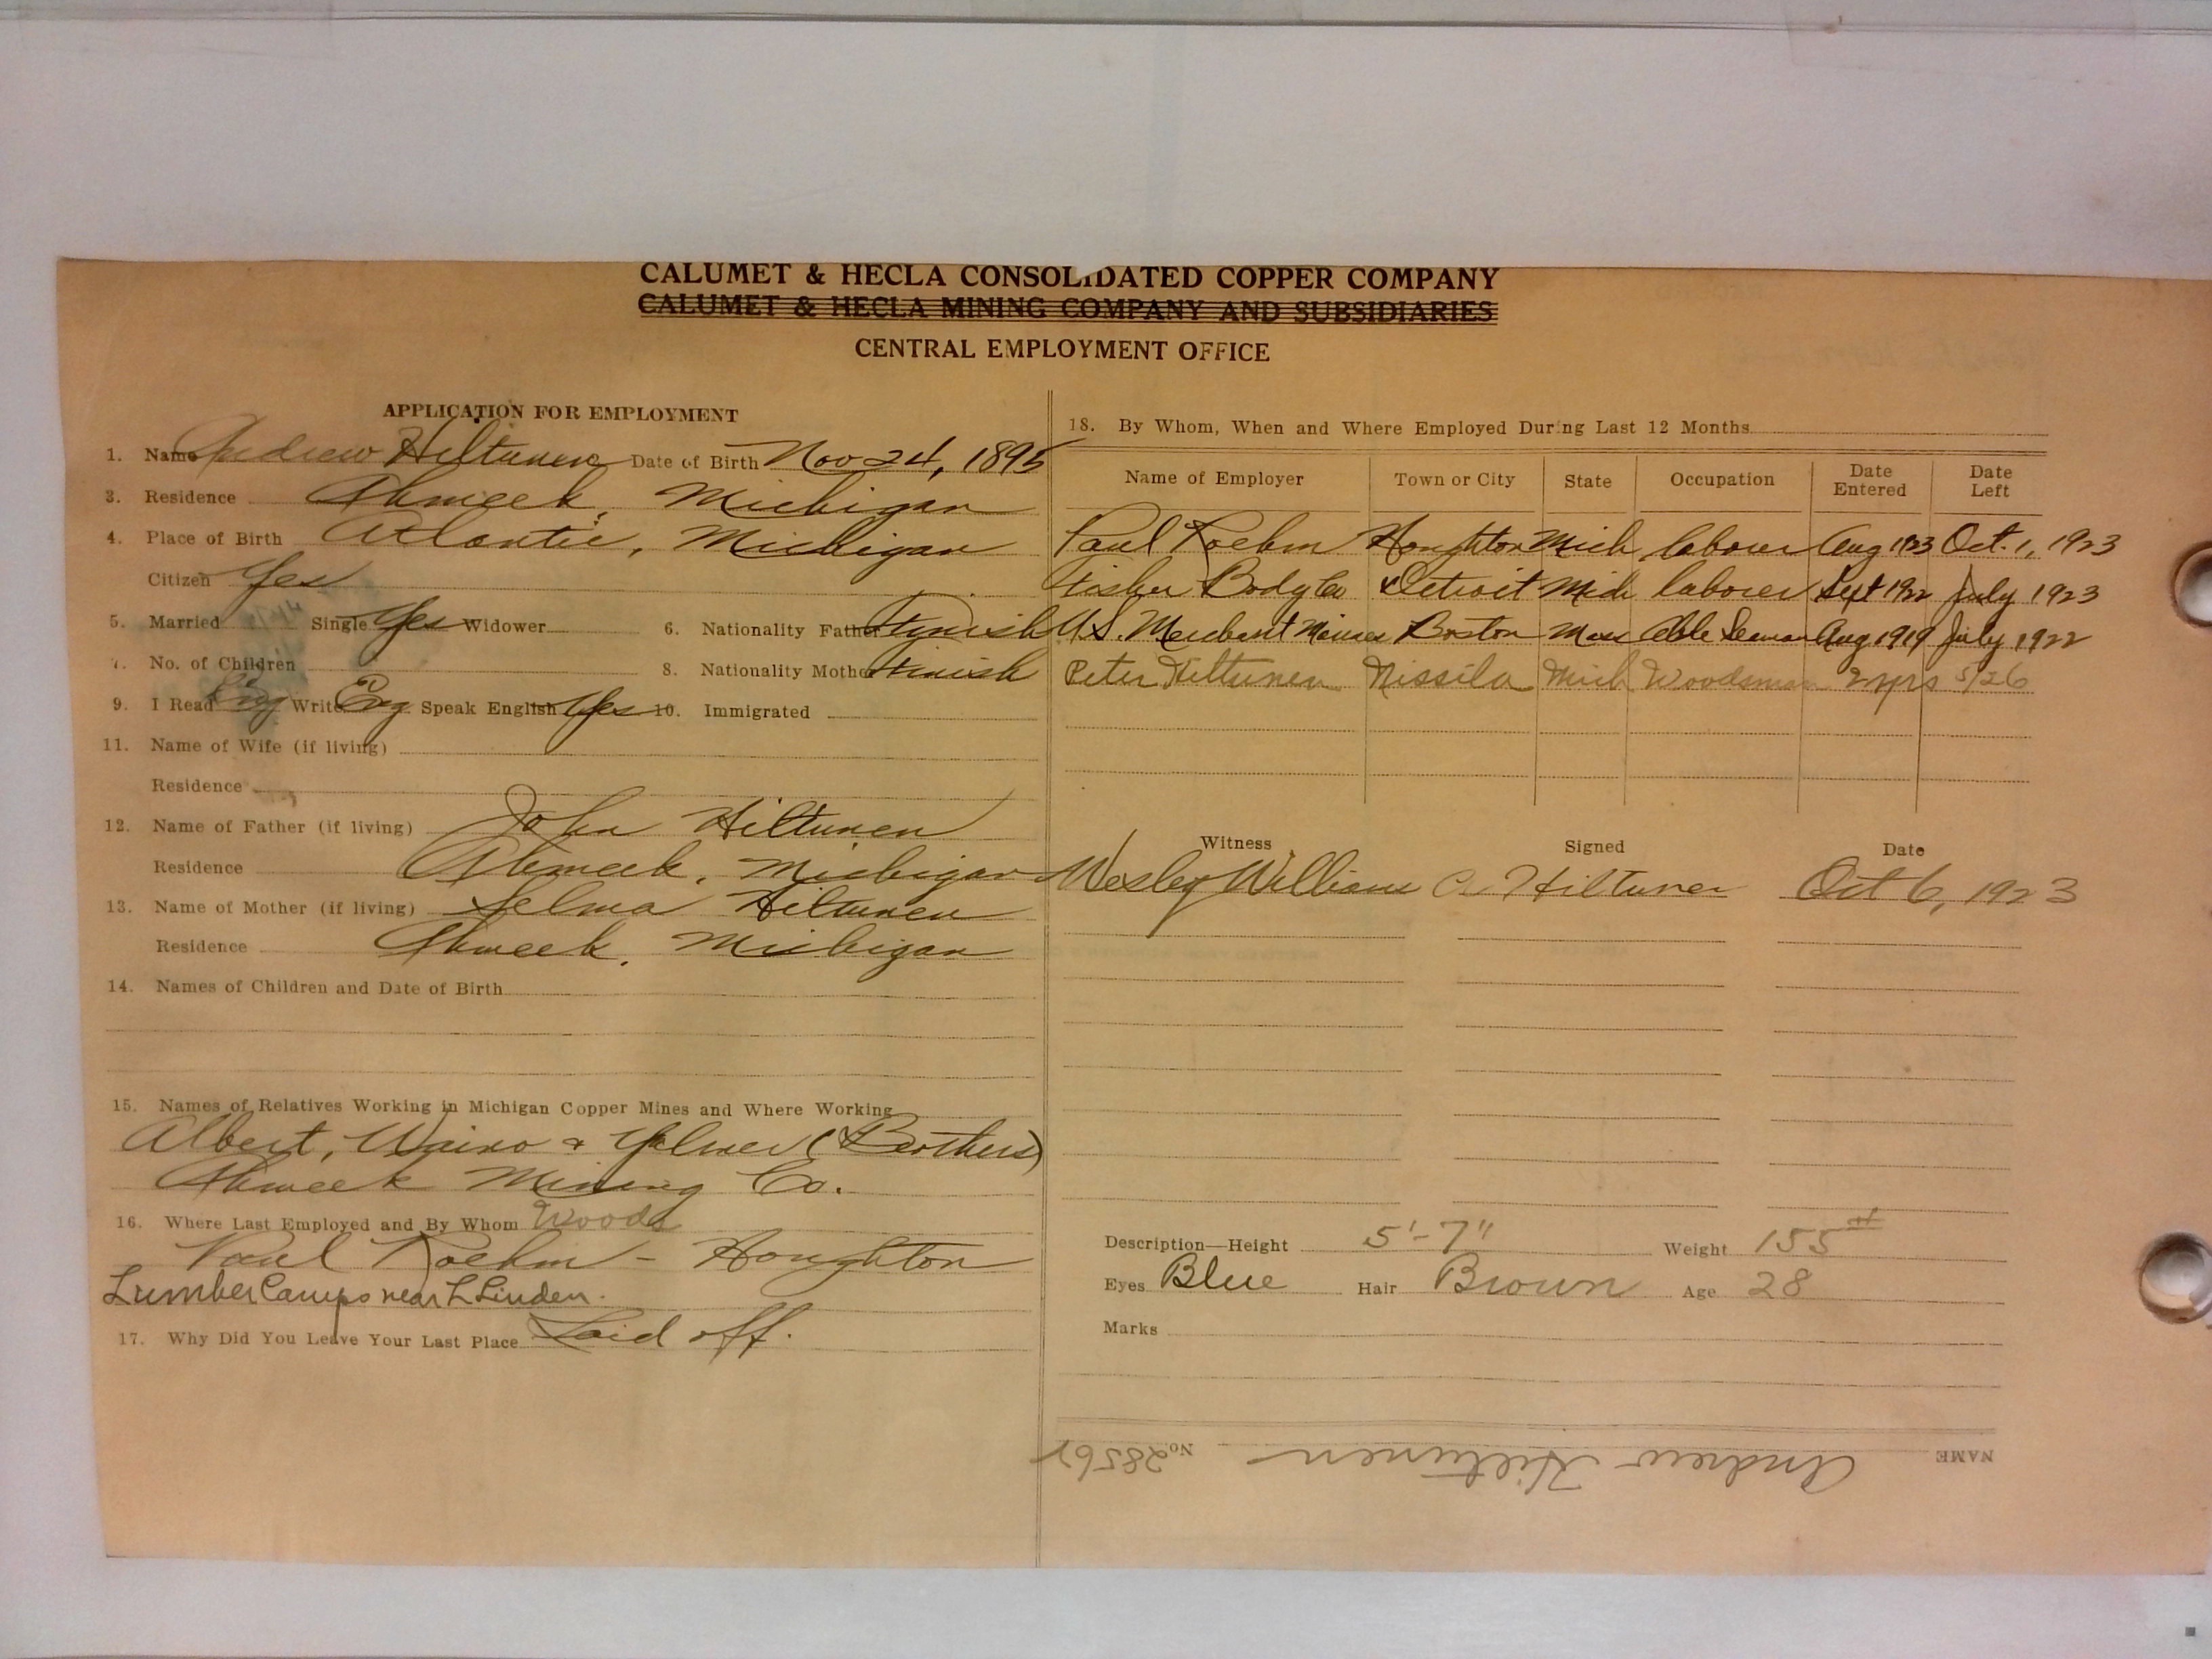 CALUMET & HECLA CONSOLIDATED COPPER COMPANY
CALUMET & HECLA MINING COMPANY AND SUBSIDIARIES
CENTRAL EMPLOYMENT OFFICE
APPLICATION FOR EMPLOYMENT
1. Name Andrew Hiltunen Date of Birth Nov 24, 1895
3. Residence Ahmeek, Michigan
4. Place of Birth Atlantic, Michigan
Citizen Yes
5. Married Single Yes Widower 6. Nationality Father Finnish
7. No. of Children 8. Nationality Mother Finnish
9. I Read Eng Write Eng Speak English Yes 10. Immigrated
11. Name of Wife (if living)
Residence
12. Name of Father (if living) John Hiltunen
Residence Ahmeek, Michigan
13. Name of Mother (if living) Selma Hiltunen
Residence Ahmeek, Michigan
14. Names of Children and Date of Birth
15. Names of Relatives Working in Michigan Copper Mines and Where Working
Albert, Waino & Yalmer (Brothers)
Ahmeek Mining Co.
16. Where Last Employed and By Whom Woods
Paul Roehm - Houghton
Lumber Camps near L Linden.
17. Why Did You Leave Your Last Place Laid off.
18. By Whom, When and Where Employed During Last 12 Months
Name of Employer Town or City State Occupation Date Entered Date Left
Paul Roehm Houghton Mich laborer Aug 1923 Oct. 1, 1923
Fisher Body Co Detroit Mich laborer Sept 1922 July 1923
U.S. Merchant Boston Mass Able Seaman Aug 1919 July 1922
Peter Hiltunen Nissila Mich Woodsman 2 yrs 5/26
Witness Signed Date
Wesley Williams A. Hiltunen Oct 6, 1923
Description—Height 5'-7" Weight 155 #
Eyes Blue Hair Brown Age 28
Marks
NAME Andrew Hiltunen No.